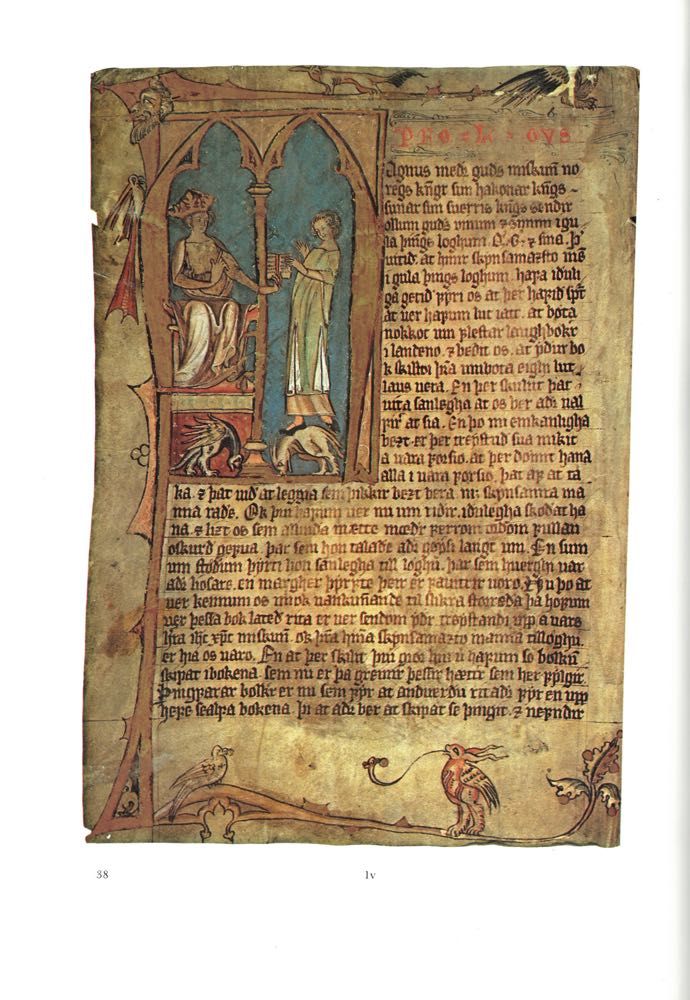 PROLOGVS
agnus med guds miskun̄ no
regs kn̄gr sun hakonar kn̄gs
sunar sun suerris kn̄gs sendir
ollum guds uinum ⁊ sinum i gu
la þings loghum. Q. G. ⁊ sina.
uitid. at hinir skynsamazsto
i gula þings loghum. hafa iduli
ga getid fyri os at þer hafid
at uer hafum lut i att. at bøta
nokkot um flestar laughbokr
i landeno. ⁊ bedit os. at ydur bo
k skilldi umbota eighi lut
laus uera. En þer skulut þat
uita sanlegha at os ber adr ual
at sia. En þo mi emkanligha
bezt. er þer treystud sua mikit
a uara forsio. at þer domnt hana
alla i uara forsio. þat af at ta
ka. ⁊ þat uid at leggia sem þikkir bezt uera. m; skynsamra ma
nna rade. Ok þui hafum uer nu um ridir. idulegha skodat ha
na. ⁊ lizt os sem mætte medr ferrom ordom fullan
oskurd gerua. þar sem hon talade adr geysi langt um. En sum
um stodum þyrfti hon sanlegha till loghu. þar sem huergin uar
adr hosare. en margher þyrfte þeir er fauittir uoro. Nu þo at
uer kennum os miok uankun̄ande til slikra storreda þa hofum
uer þessa bok lated rita er uer sendom ydr treystandi upp a uars
miskun̄. ok skynsamazto manna tilloghu
er hia os uaro. En at þer skilit giorr hafum se bolku
skipat i bokena. sem nu er þa greinir þessir hættir sem her fylgir.
Þingfarar bolkr er nu sem fyr at anduerdu ritadr fyr en upp
hefe sealfa bokena. þi at adr ber at skipat se þingit. ⁊ nefndir
38
1v